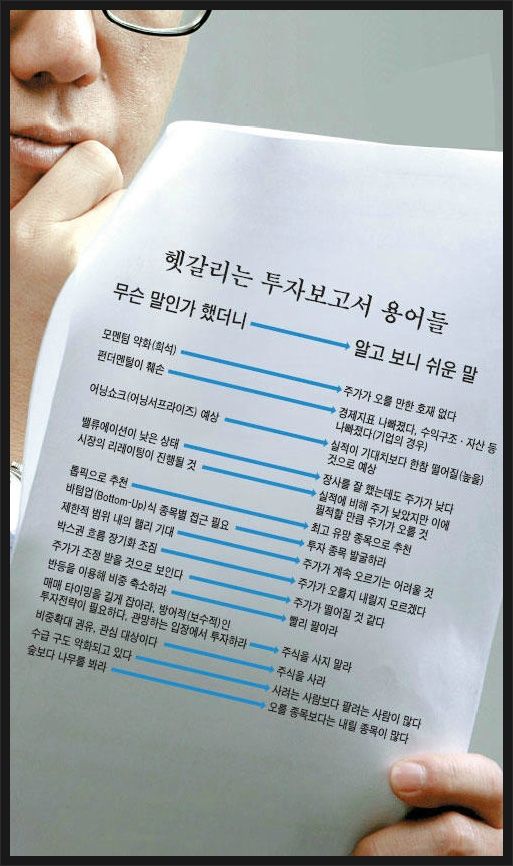 헷갈리는 투자보고서 용어들
무슨 말인가 했더니
알고 보니 쉬운 말
모멘텀 악화(희석)
주가가 오를 만한 호재 없다
펀더멘털이 훼손
경제지표 나빠졌다, 수익구조·자산 등
나빠졌다(기업의 경우)
어닝쇼크(어닝서프라이즈) 예상
실적이 기대치보다 한참 떨어질(높을)
것으로 예상
밸류에이션이 낮은 상태
장사를 잘 했는데도 주가가 낮다
시장의 리레이팅이 진행될 것
실적에 비해 주가 낮았지만 이에
필적할 만큼 주가가 오를 것
톱픽으로 추천
최고 유망 종목으로 추천
바텀업(Bottom-Up)식 종목별 접근 필요
투자 종목 발굴하라
제한적 범위 내의 랠리 기대
주가가 계속 오르기는 어려울 것
박스권 흐름 장기화 조짐
주가가 오를지 내릴지 모르겠다
주가가 조정 받을 것으로 보인다
주가가 떨어질 것 같다
반등을 이용해 비중 축소하라
빨리 팔아라
매매 타이밍을 길게 잡아라, 방어적(보수적)인
투자전략이 필요하다, 관망하는 입장에서 투자하라
주식을 사지 말라
비중확대 권유, 관심 대상이다
주식을 사라
수급 구도 악화되고 있다
사려는 사람보다 팔려는 사람이 많다
숲보다 나무를 봐라
오를 종목보다는 내릴 종목이 많다